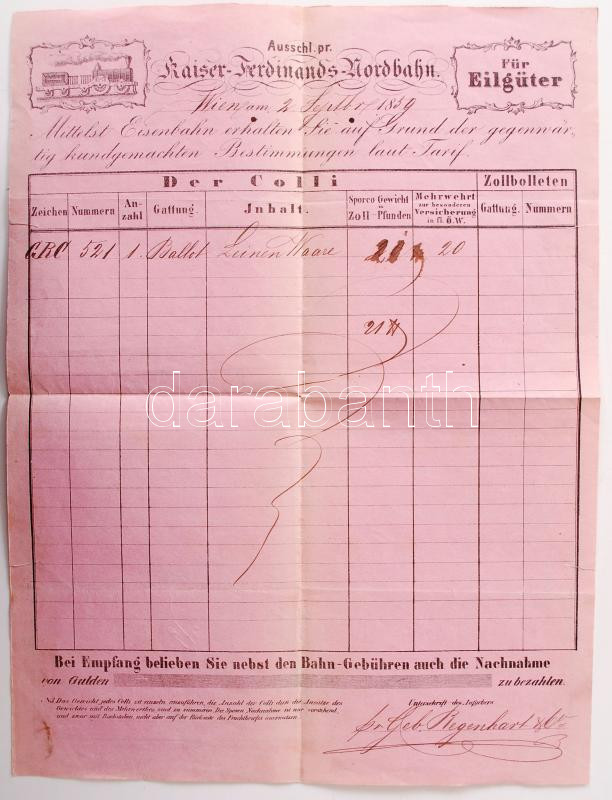 Ausschl. pr.
Kaiser-Ferdinands-Nordbahn.
Für
Eilgüter
Wien am 2 Septbr 1859
Mittelst Eisenbahn erhalten Sie auf Grund der gegenwär-
tig kundgemachten Bestimmungen laut Tarif.
Der Colli
Zollbolleten
Zeichen Nummern An-zahl Gattung. Inhalt. Sporco-Gewicht in Zoll-Pfunden Mehrwehrt zur besonderen Versicherung in fl. ö.W. Gattung. Nummern
CRC 521 1. Ballot Leinen Waare 21 ℔ 20
21 ℔
darabanth
Bei Empfang belieben Sie nebst den Bahn-Gebühren auch die Nachnahme
von Gulden zu bezahlen.
Das Gewicht jedes Colli ist einzeln anzuführen, die Anzahl der Colli dann der Ansätze des
Gewichtes und des Mehrwerthes sind zu summiren. Die Spesen Nachnahme ist nur vorstehend,
und zwar mit Buchstaben nicht aber auf der Rückseite des Frachtbriefes anzusetzen
Unterschrift des Aufgebers
pr Geb. Regenhart & Co